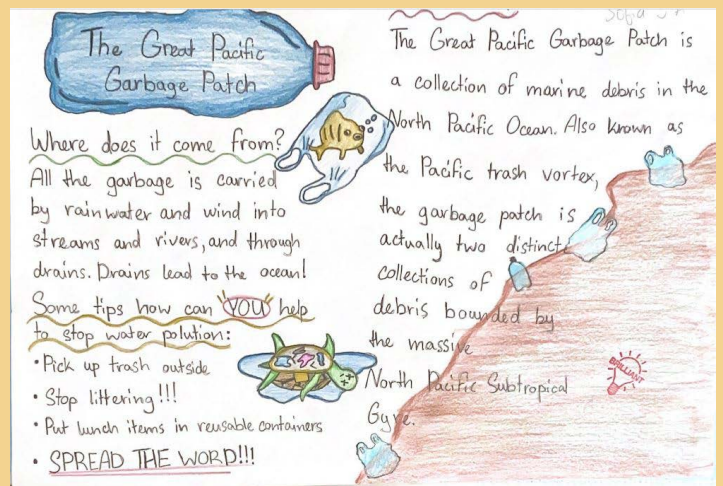 The Great Pacific
Garbage Patch
Where does it come from?
All the garbage is carried
by rainwater and wind into
streams and rivers, and through
drains. Drains lead to the ocean!
Some tips how can YOU help
to stop water polution:
• Pick up trash outside
• Stop littering!!!
• Put lunch items in reusable containers
• SPREAD THE WORD!!!
The Great Pacific Garbage Patch is
a collection of marine debris in the
North Pacific Ocean. Also known as
the Pacific trash vortex,
the garbage patch is
actually two distinct
collections of
debris bounded by
the massive
North Pacific Subtropical
Gyre.
BRILLIANT